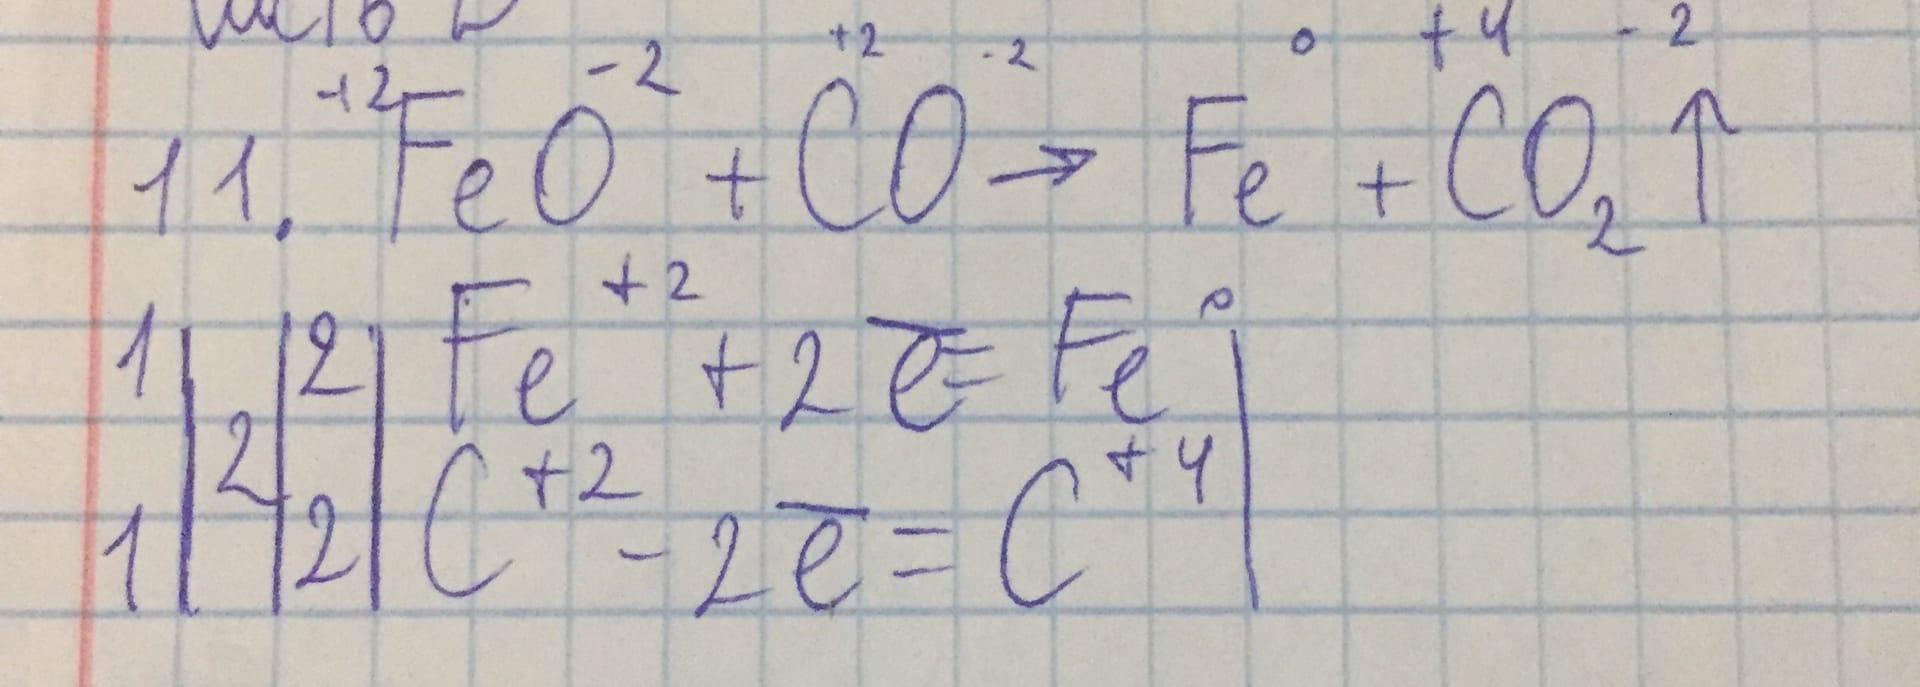 11. ⁺²FeO⁻² + C⁺²O⁻² → Fe⁰ + C⁺⁴O₂⁻² ↑
1 | 2 | 2 | Fe⁺² + 2e̅ = Fe⁰ |
1 | | 2 | C⁺² - 2e̅ = C⁺⁴ |